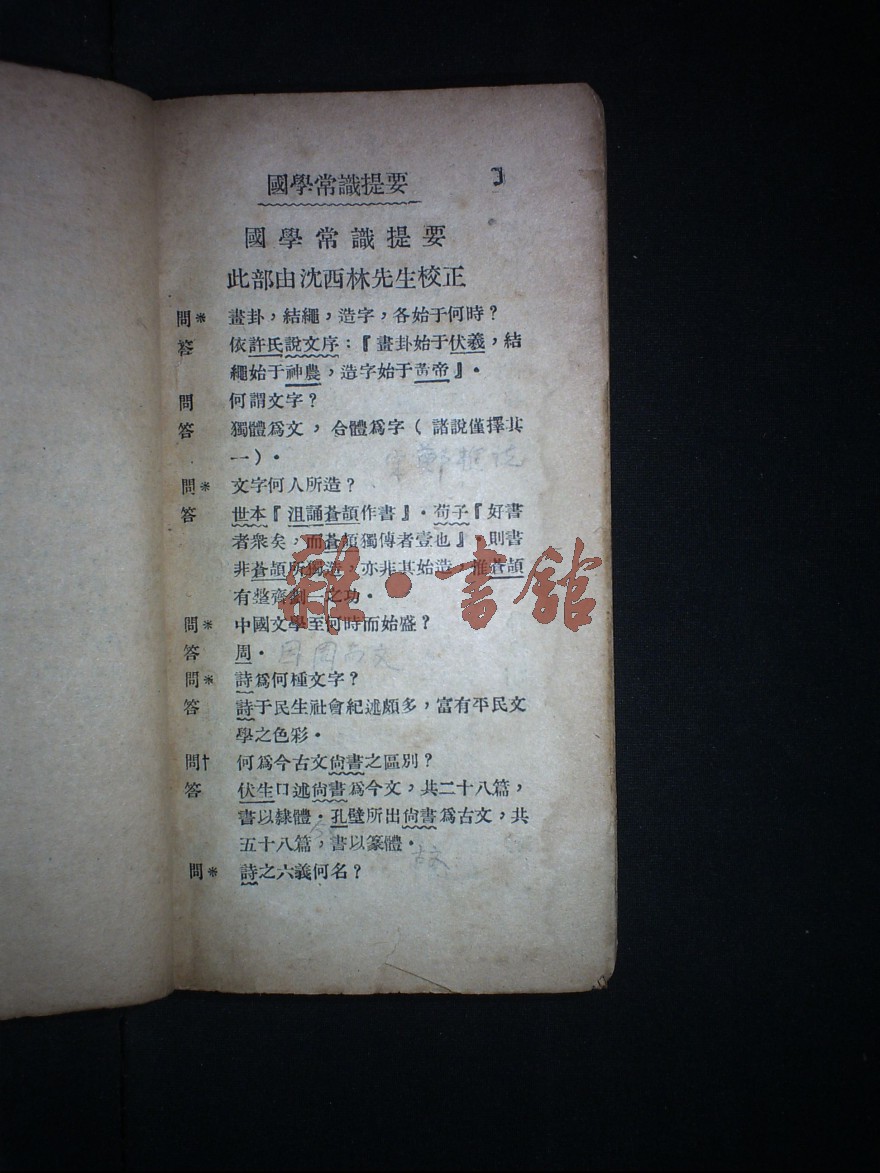 國學常識提要
國學常識提要
此部由沈西林先生校正
問* 畫卦，結繩，造字，各始于何時？
答 依許氏說文序：『畫卦始于伏羲，結
繩始于神農，造字始于黃帝』。
問 何謂文字？
答 獨體爲文，合體爲字（諸說僅擇其
一）。
問* 文字何人所造？
答 世本『沮誦蒼頡作書』。荀子『好書
者衆矣，而蒼頡獨傳者壹也』。則書
非蒼頡所獨造，亦非其始造，惟蒼頡
有整齊劃一之功。
問* 中國文學至何時而始盛？
答 周。
問* 詩爲何種文字？
答 詩于民生社會紀述頗多，富有平民文
學之色彩。
問† 何爲今古文尙書之區別？
答 伏生口述尙書爲今文，共二十八篇，
書以隸體。孔壁所出尙書爲古文，共
五十八篇，書以篆體。
問* 詩之六義何名？
雜·書館